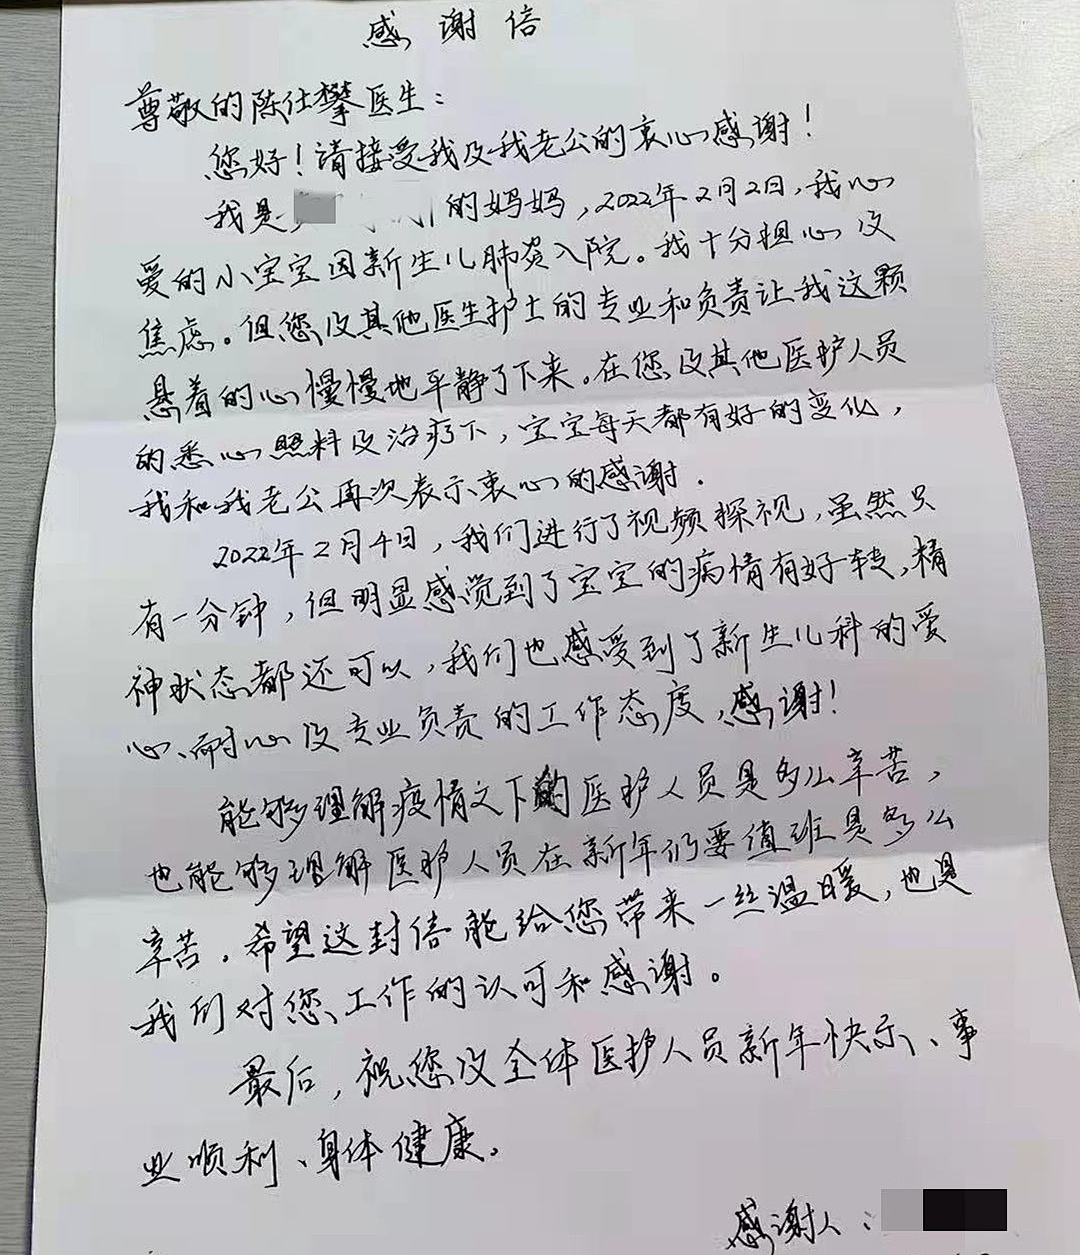 感谢信
尊敬的陈仕攀医生：
您好！请接受我及我老公的衷心感谢！
我是 的妈妈，2022年2月2日，我心
爱的小宝宝因新生儿肺炎入院。我十分担心及
焦虑。但您及其他医生护士的专业和负责让我这颗
悬着的心慢慢地平静了下来。在您及其他医护人员
的悉心照料及治疗下，宝宝每天都有好的变化，
我和我老公再次表示衷心的感谢.
2022年2月4日，我们进行了视频探视，虽然只
有一分钟，但明显感觉到了宝宝的病情有好转，精
神状态都还可以，我们也感受到了新生儿科的爱
心、耐心及专业负责的工作态度，感谢！
能够理解疫情之下的医护人员是多么辛苦，
也能够理解医护人员在新年仍要值班是多么
辛苦。希望这封信能给您带来一丝温暖，也是
我们对您工作的认可和感谢。
最后，祝您及全体医护人员新年快乐、事
业顺利、身体健康。
感谢人：